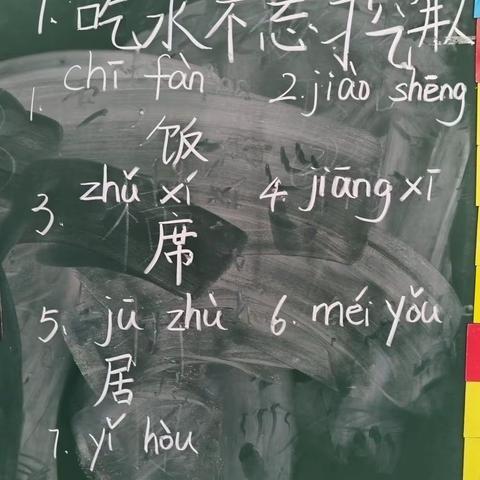 1. 吃水不忘挖井人
1. chī fàn 2. jiào shēng
饭
3. zhǔ xí 4. jiāng xī
席
5. jū zhù 6. méi yǒu
居
7. yǐ hòu